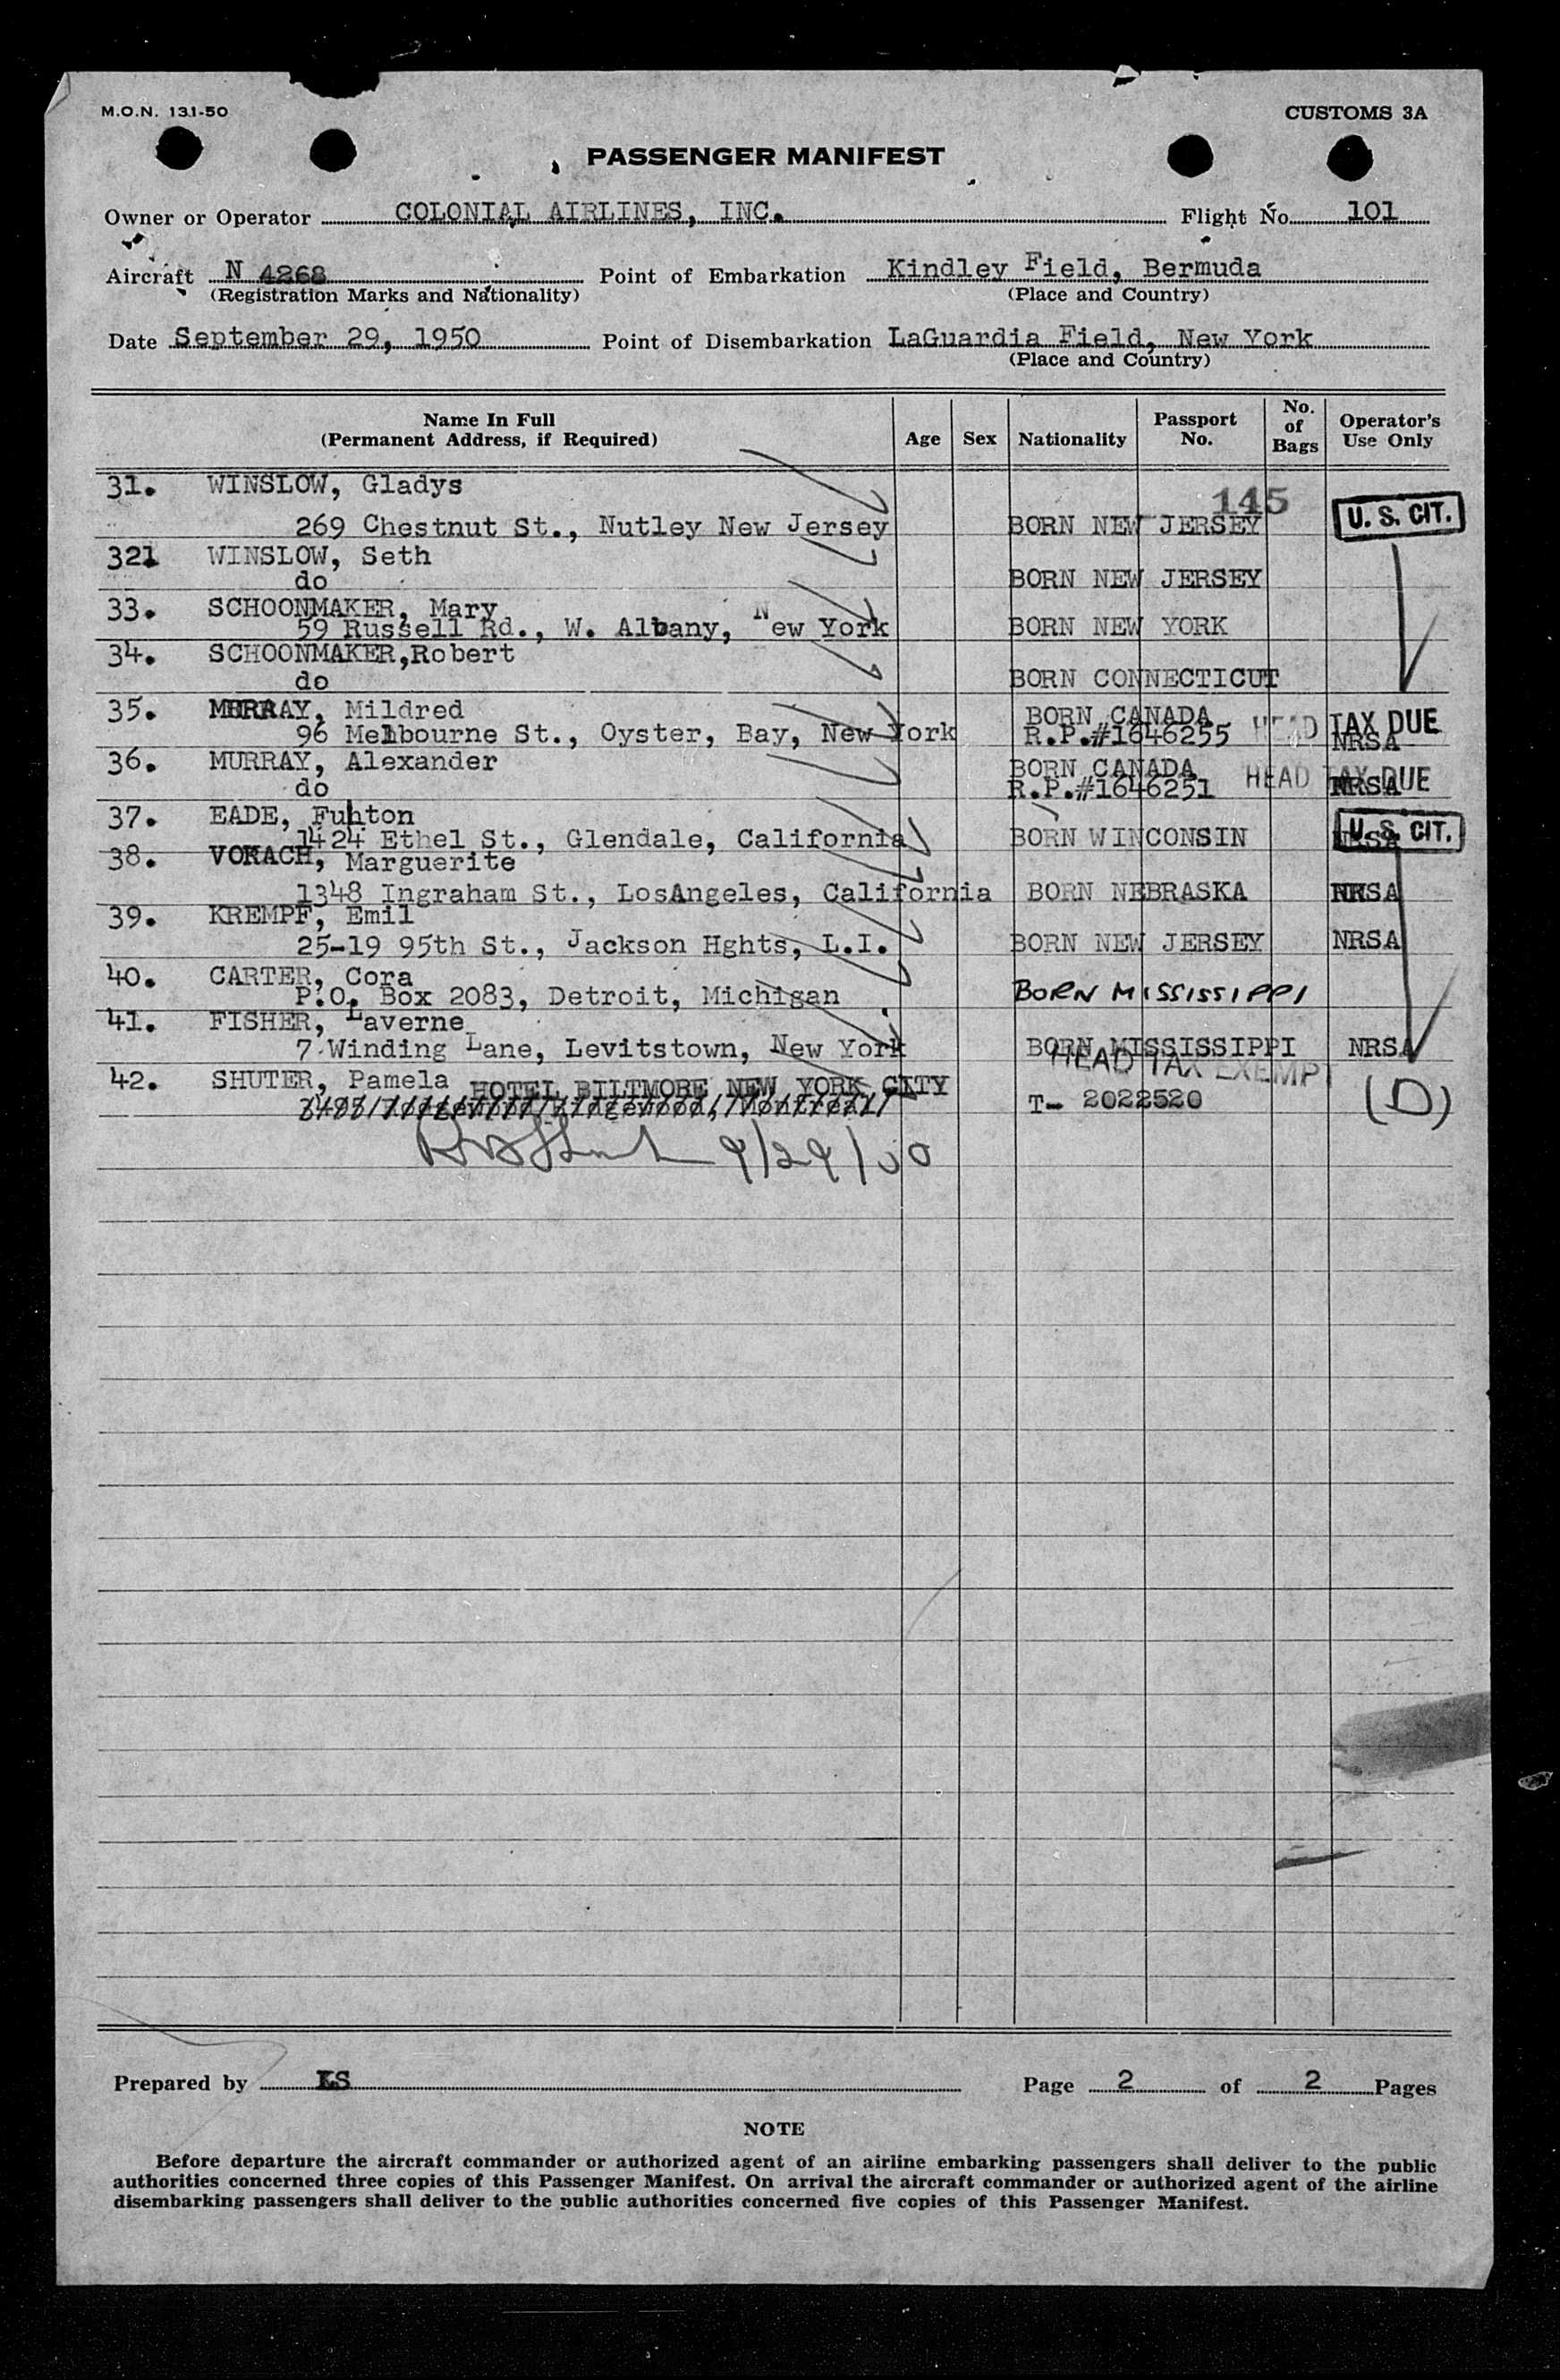 M.O.N. 131-50
CUSTOMS 3A
PASSENGER MANIFEST
Owner or Operator COLONIAL AIRLINES, INC. Flight No. 101
Aircraft N 4268 Point of Embarkation Kindley Field, Bermuda
(Registration Marks and Nationality) (Place and Country)
Date September 29, 1950 Point of Disembarkation LaGuardia Field, New York
(Place and Country)
Name In Full
(Permanent Address, if Required) Age Sex Nationality Passport No. No. of Bags Operator's Use Only
31. WINSLOW, Gladys 145
269 Chestnut St., Nutley New Jersey BORN NEW JERSEY U. S. CIT.
321 WINSLOW, Seth
do BORN NEW JERSEY
33. SCHOONMAKER, Mary
59 Russell Rd., W. Albany, New York BORN NEW YORK
34. SCHOONMAKER,Robert
do BORN CONNECTICUT
35. MURRAY, Mildred BORN CANADA HEAD TAX DUE
96 Melbourne St., Oyster, Bay, New York R.P.#1646255 NRSA
36. MURRAY, Alexander BORN CANADA HEAD TAX DUE
do R.P.#1646251 NRSA
37. EADE, Fulton U. S. CIT.
1424 Ethel St., Glendale, California BORN WINCONSIN NRSA
38. Marguerite
1348 Ingraham St., LosAngeles, California BORN NEBRASKA NRSA
39. KREMPF, Emil
25-19 95th St., Jackson Hghts, L.I. BORN NEW JERSEY NRSA
40. CARTER, Cora
P.O. Box 2083, Detroit, Michigan BORN MISSISSIPPI
41. FISHER, Laverne
7 Winding Lane, Levitstown, New York BORN MISSISSIPPI NRSA
HEAD TAX EXEMPT
42. SHUTER, Pamela HOTEL BILTMORE NEW YORK CITY
T- 2022520 (D)
9/29/50
Prepared by LS Page 2 of 2 Pages
NOTE
Before departure the aircraft commander or authorized agent of an airline embarking passengers shall deliver to the public
authorities concerned three copies of this Passenger Manifest. On arrival the aircraft commander or authorized agent of the airline
disembarking passengers shall deliver to the public authorities concerned five copies of this Passenger Manifest.